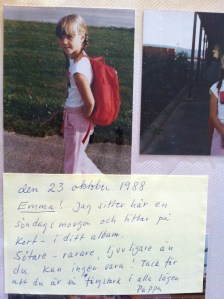 den 23 oktober 1988
Emma! Jag sitter här en
söndags morgon och tittar på
kort - i ditt album.
Sötare - rarare, ljuvligare än
du kan ingen vara! Tack för
att du är vi i alla lägen
Pappa